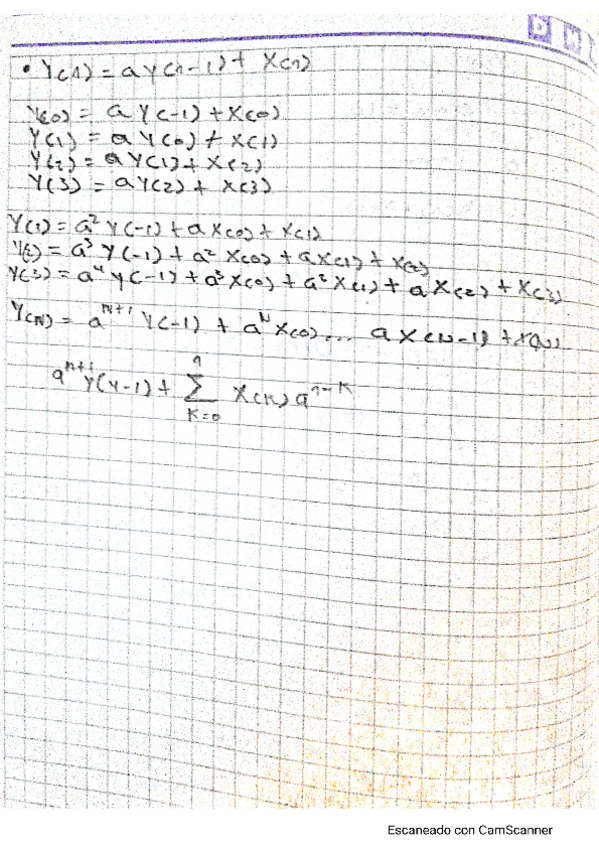 D M
• Y(n) = a Y(n-1) + X(n)
Y(0) = a Y(-1) + X(0)
Y(1) = a Y(0) + X(1)
Y(2) = a Y(1) + X(2)
Y(3) = a Y(2) + X(3)
Y(1) = a² Y(-1) + a X(0) + X(1)
Y(2) = a³ Y(-1) + a² X(0) + a X(1) + X(2)
Y(3) = a⁴ Y(-1) + a³ X(0) + a² X(1) + a X(2) + X(3)
Y(N) = aⁿ⁺¹ Y(-1) + aᴺ X(0) ... a X(N-1) + X(N)
aⁿ⁺¹ Y(n-1) + ∑ₖ₌₀ⁿ X(K) aⁿ⁻ᴷ
Escaneado con CamScanner